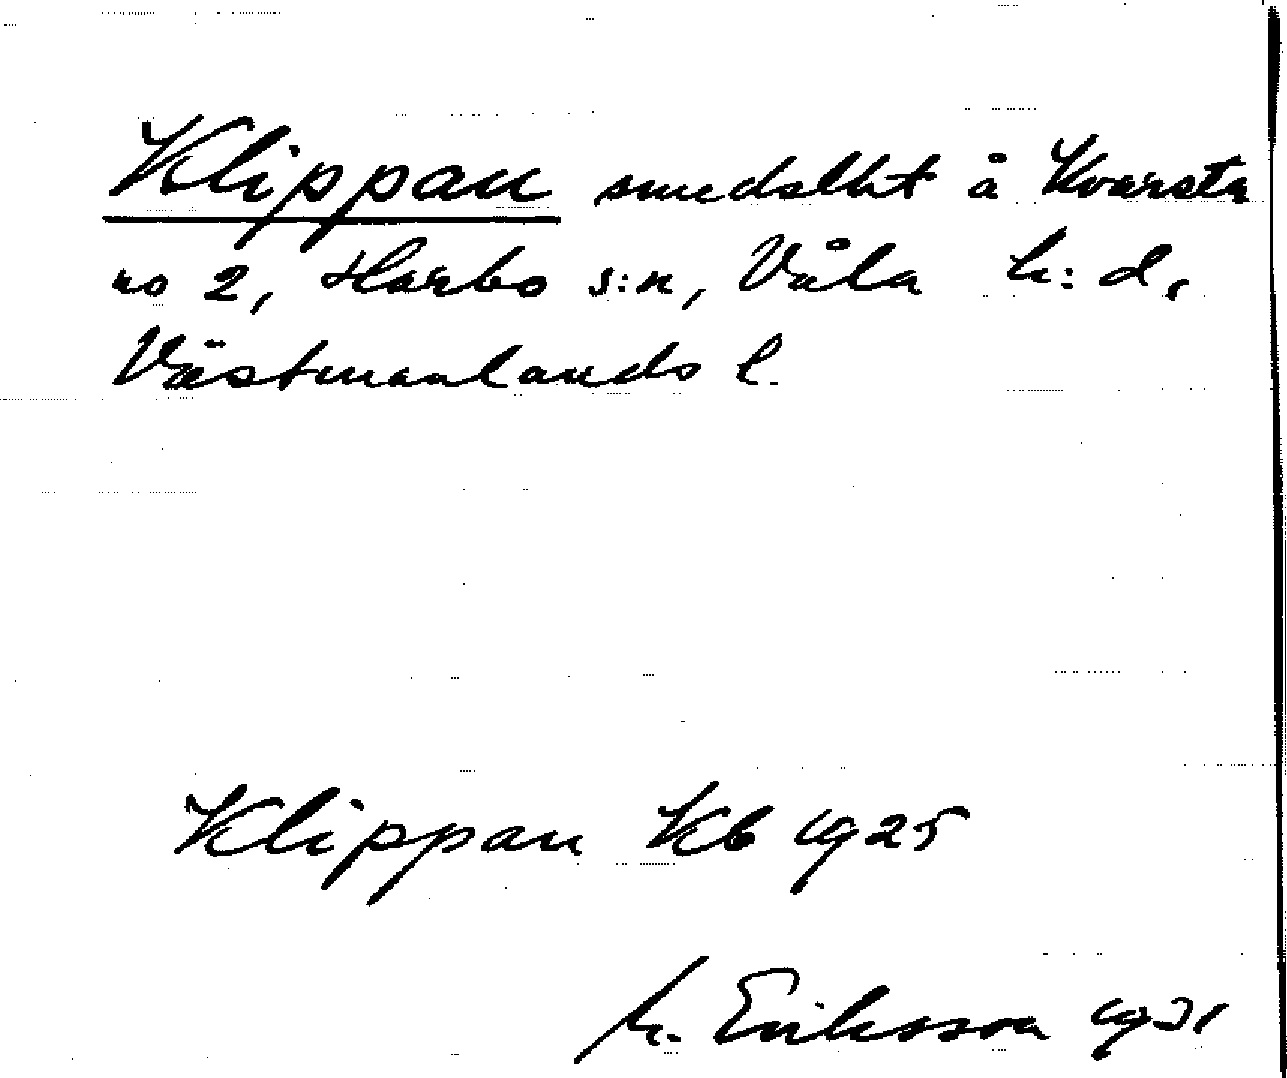 Klippan smedslht å Kvarsta
no 2, Harbo s:n, Våla h:d,
Västmanlands l.
Klippan Kb 1925
M. Eriksson 1931